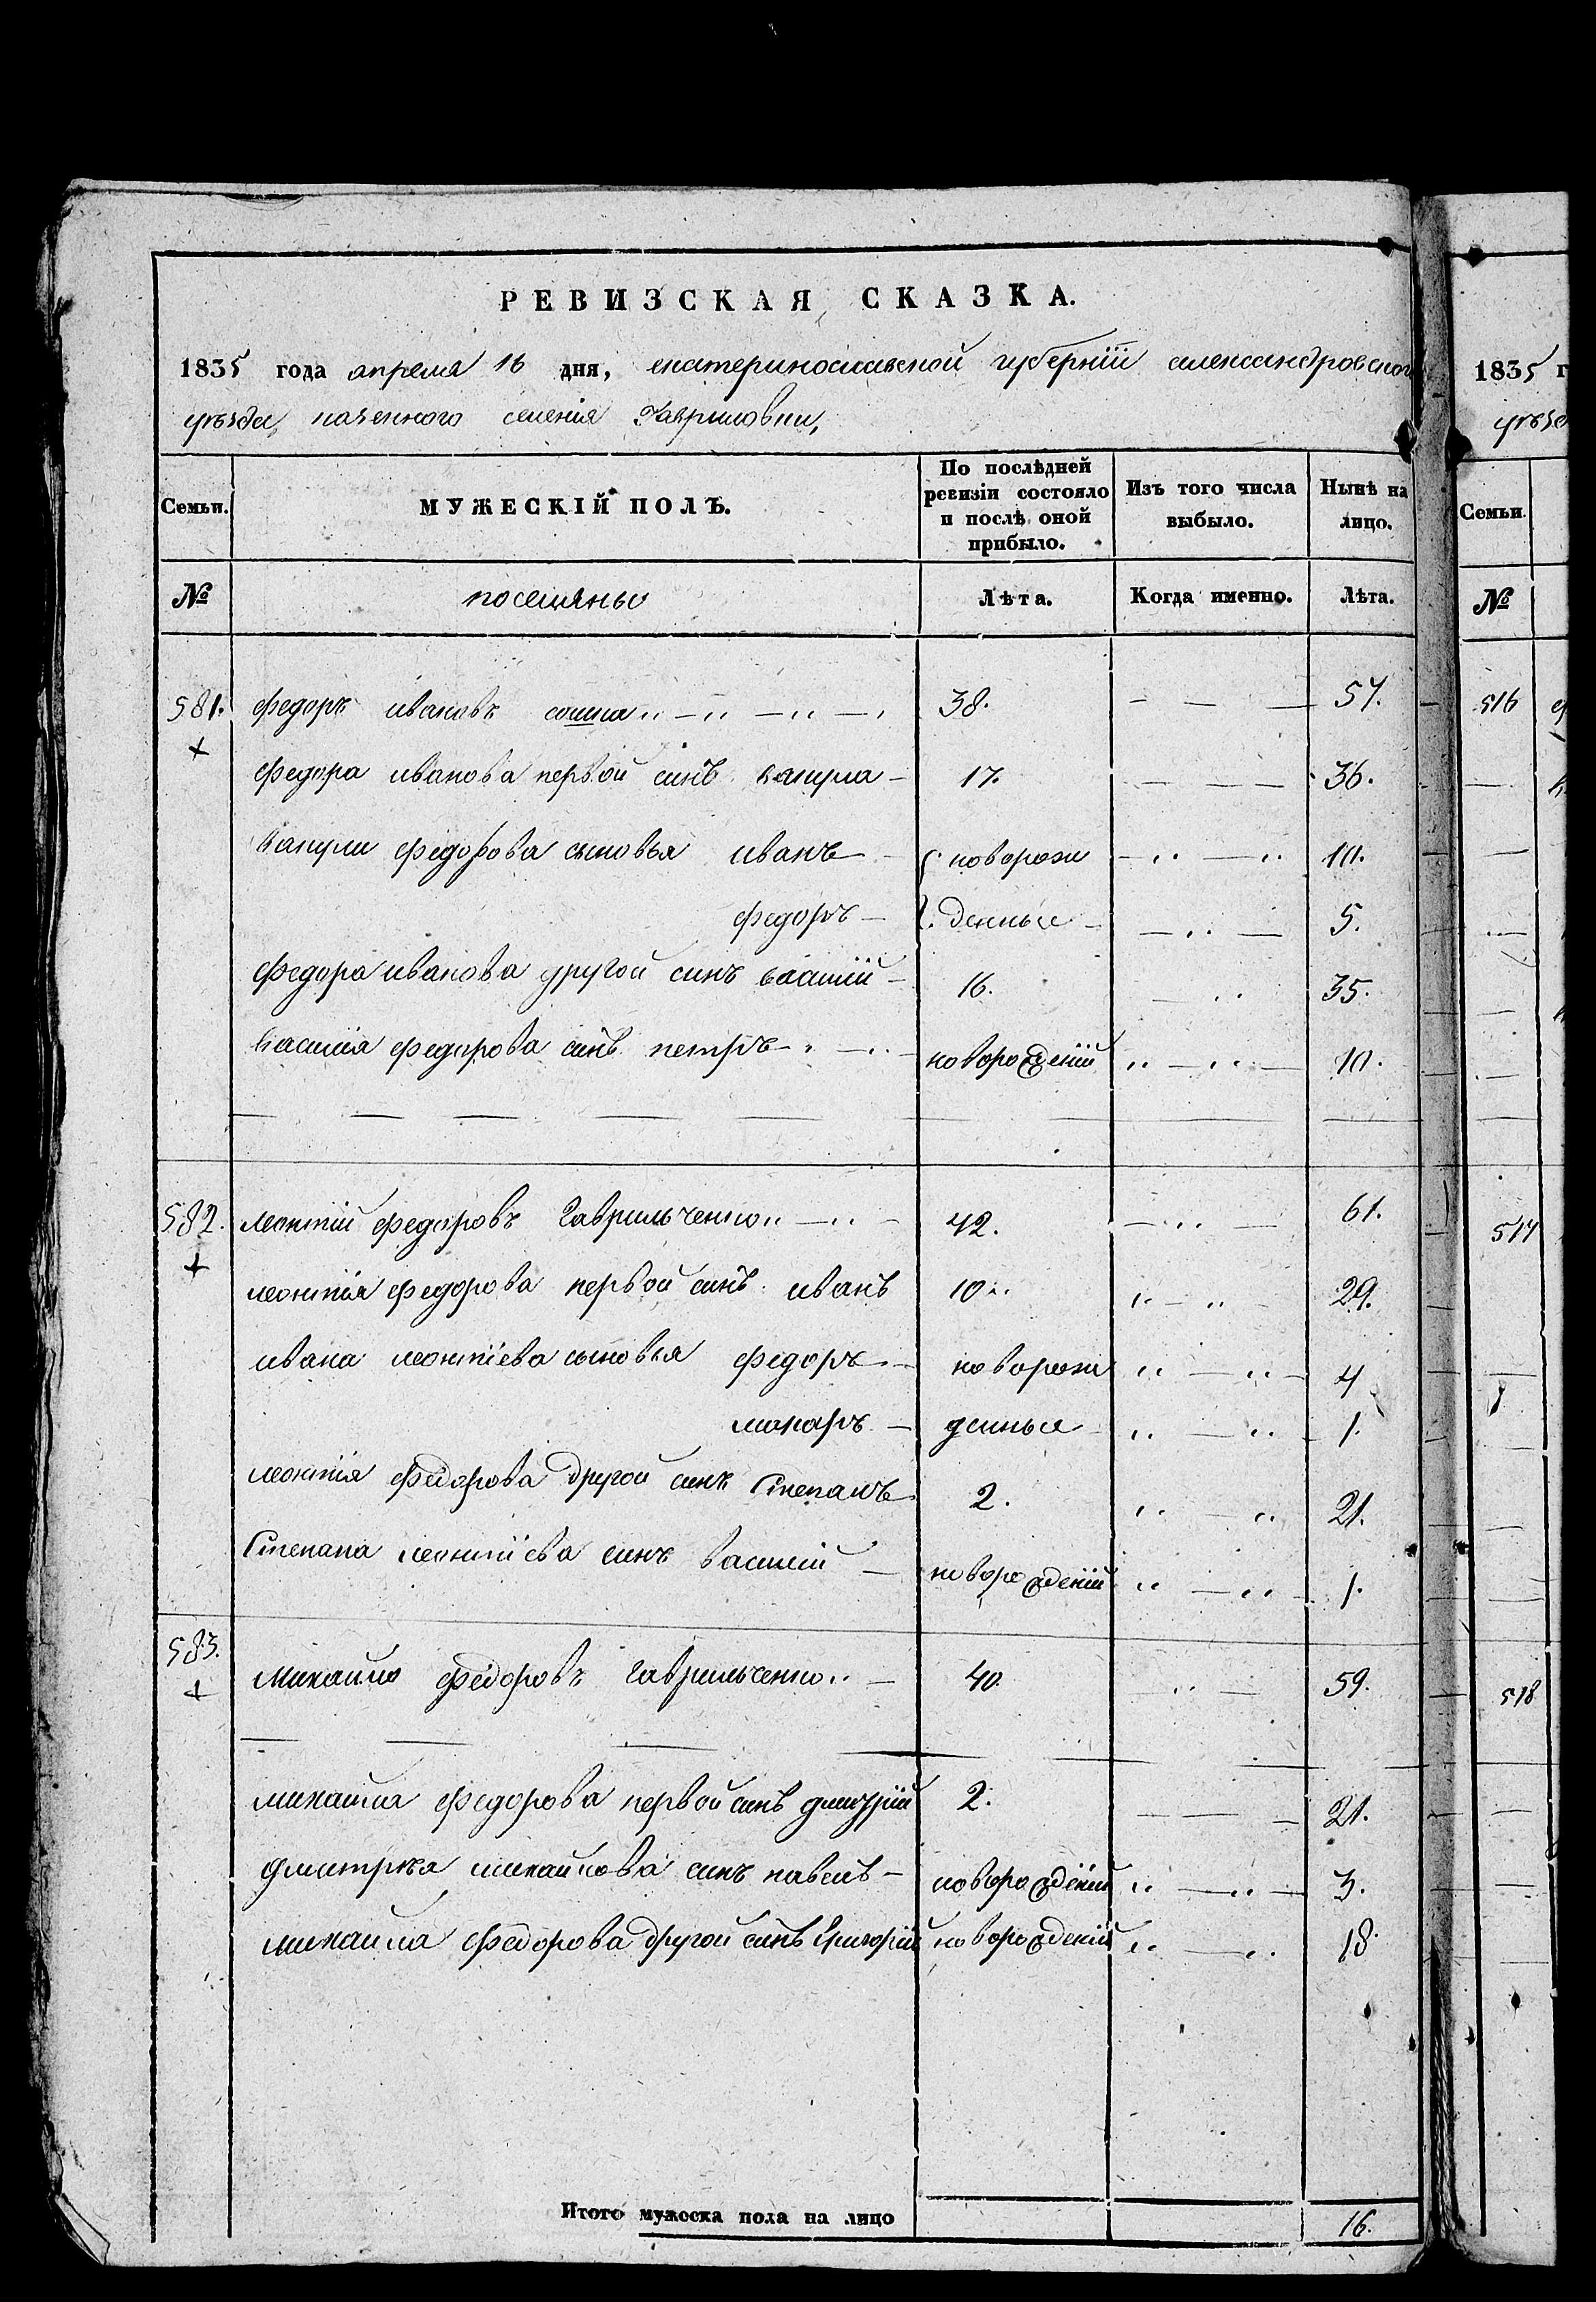 РЕВИЗСКАЯ СКАЗКА.
1835 года апреля 16 дня, екатеринославской губерніи александровского
уѣзда, казенного селенія Гавриловки,
Семьи. МУЖЕСКІЙ ПОЛЪ. По послѣдней ревизіи состояло и послѣ оной прибыло. Изъ того числа выбыло. Нынѣ на лицо.
№ поселяньі Лѣта. Когда именно. Лѣта.
581. федоръ ивановъ сошка 38. 57.
федора иванова первой синъ вакула 17. 36.
вакули федорова сыновья иванъ новорож 10.
федоръ денные 5.
федора иванова другой синъ василій 16. 35.
василія федорова синъ петръ новорожденій 10.
582. леонтій федоровъ гаврильченко 42. 61.
леонтія федорова первой синъ иванъ 10 29.
ивана леонтіева сыновья федоръ новорож 4
макаръ денные 1.
леонтія федорова другой синъ Степанъ 2. 21.
Степана леонтіева синъ василій новорожденій 1.
583. михайло федоровъ гаврильченко 40. 59.
михайла федорова первой синъ дмитрій 2. 21.
дмитрія михайлова синъ павелъ новорожденій 3.
михайла федорова другой синъ Григорій новорожденій 18.
Итого мужеска пола на лицо 16.
1835 г
уѣзд
Семьи.
№
516
517
518